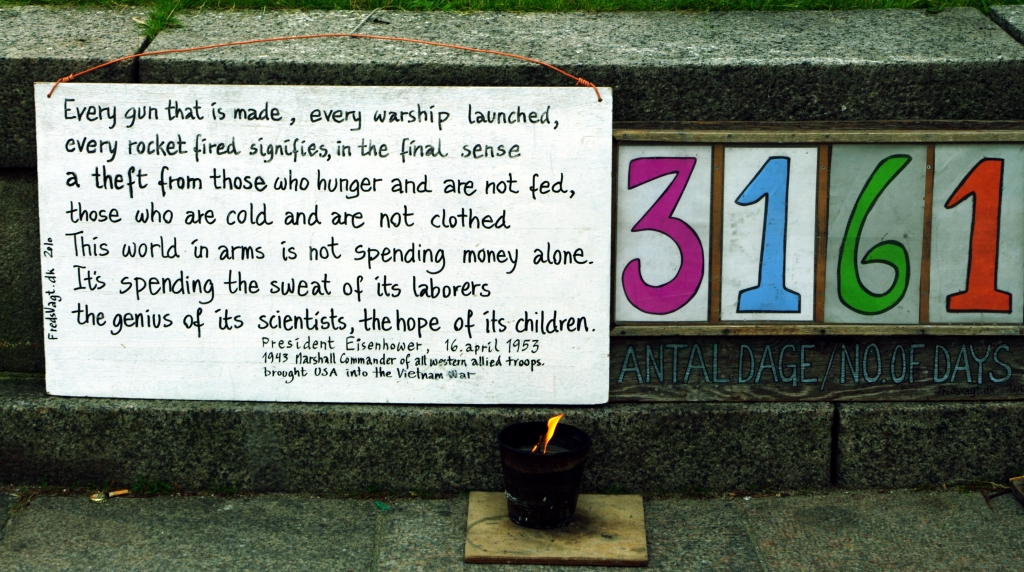 Every gun that is made, every warship launched,
every rocket fired signifies, in the final sense
a theft from those who hunger and are not fed,
those who are cold and are not clothed
This world in arms is not spending money alone.
It's spending the sweat of its laborers
the genius of its scientists, the hope of its children.
President Eisenhower, 16. april 1953
1943 Marshall Commander of all western allied troops.
brought USA into the Vietnam War
FredsVagt.dk 2010
3161
ANTAL DAGE/NO.OF DAYS